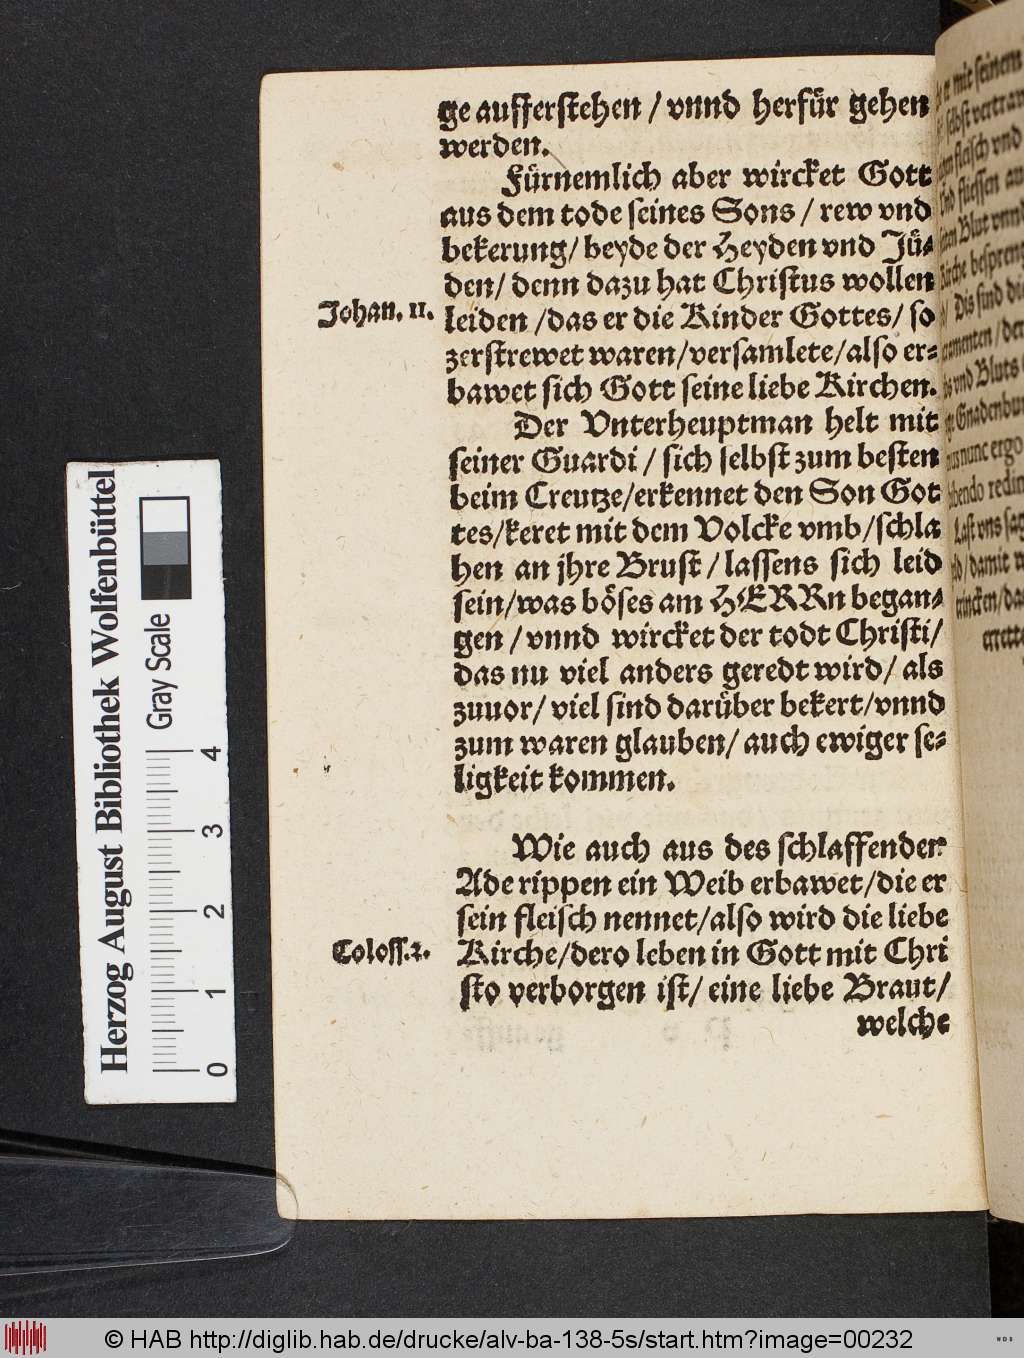 ge aufferſtehen / vnnd herfür gehen
werden.
Fürnemlich aber wircket Gott
aus dem tode ſeines Sons / rew vnd
bekerung/ beyde der Heyden vnd Jü-
den/ denn dazu hat Chriſtus wollen
Johan. 11.
leiden /das er die Kinder Gottes/ ſo
zerſtrewet waren/verſamlete/alſo er-
bawet ſich Gott ſeine liebe Kirchen.
Der Vnterheuptman helt mit
ſeiner Guardi / ſich ſelbſt zum beſten
beim Creutze/erkennet den Son Got
tes/keret mit dem Volcke vmb/ſchla
hen an jhre Bruſt / laſſens ſich leid
ſein/was böſes am HERRn began-
gen / vnnd wircket der todt Chriſti/
das nu viel anders geredt wird/ als
zuuor/ viel ſind darüber bekert/vnnd
zum waren glauben/ auch ewiger ſe-
ligkeit kommen.
Wie auch aus des ſchlaffenden
Ade rippen ein Weib erbawet/die er
ſein fleiſch nennet/alſo wird die liebe
Coloſſ.2.
Kirche/dero leben in Gott mit Chri
ſto verborgen iſt/ eine liebe Braut/
welche
mit ſeinem
ſelbſt
fleiſch vnd
Blut vnnd
Dis ſind
vnd Bluts
nunc ergo
Laſt vns
damit
trincken/
Herzog August Bibliothek Wolfenbüttel
Gray Scale
0 1 2 3 4
© HAB http://diglib.hab.de/drucke/alv-ba-138-5s/start.htm?image=00232